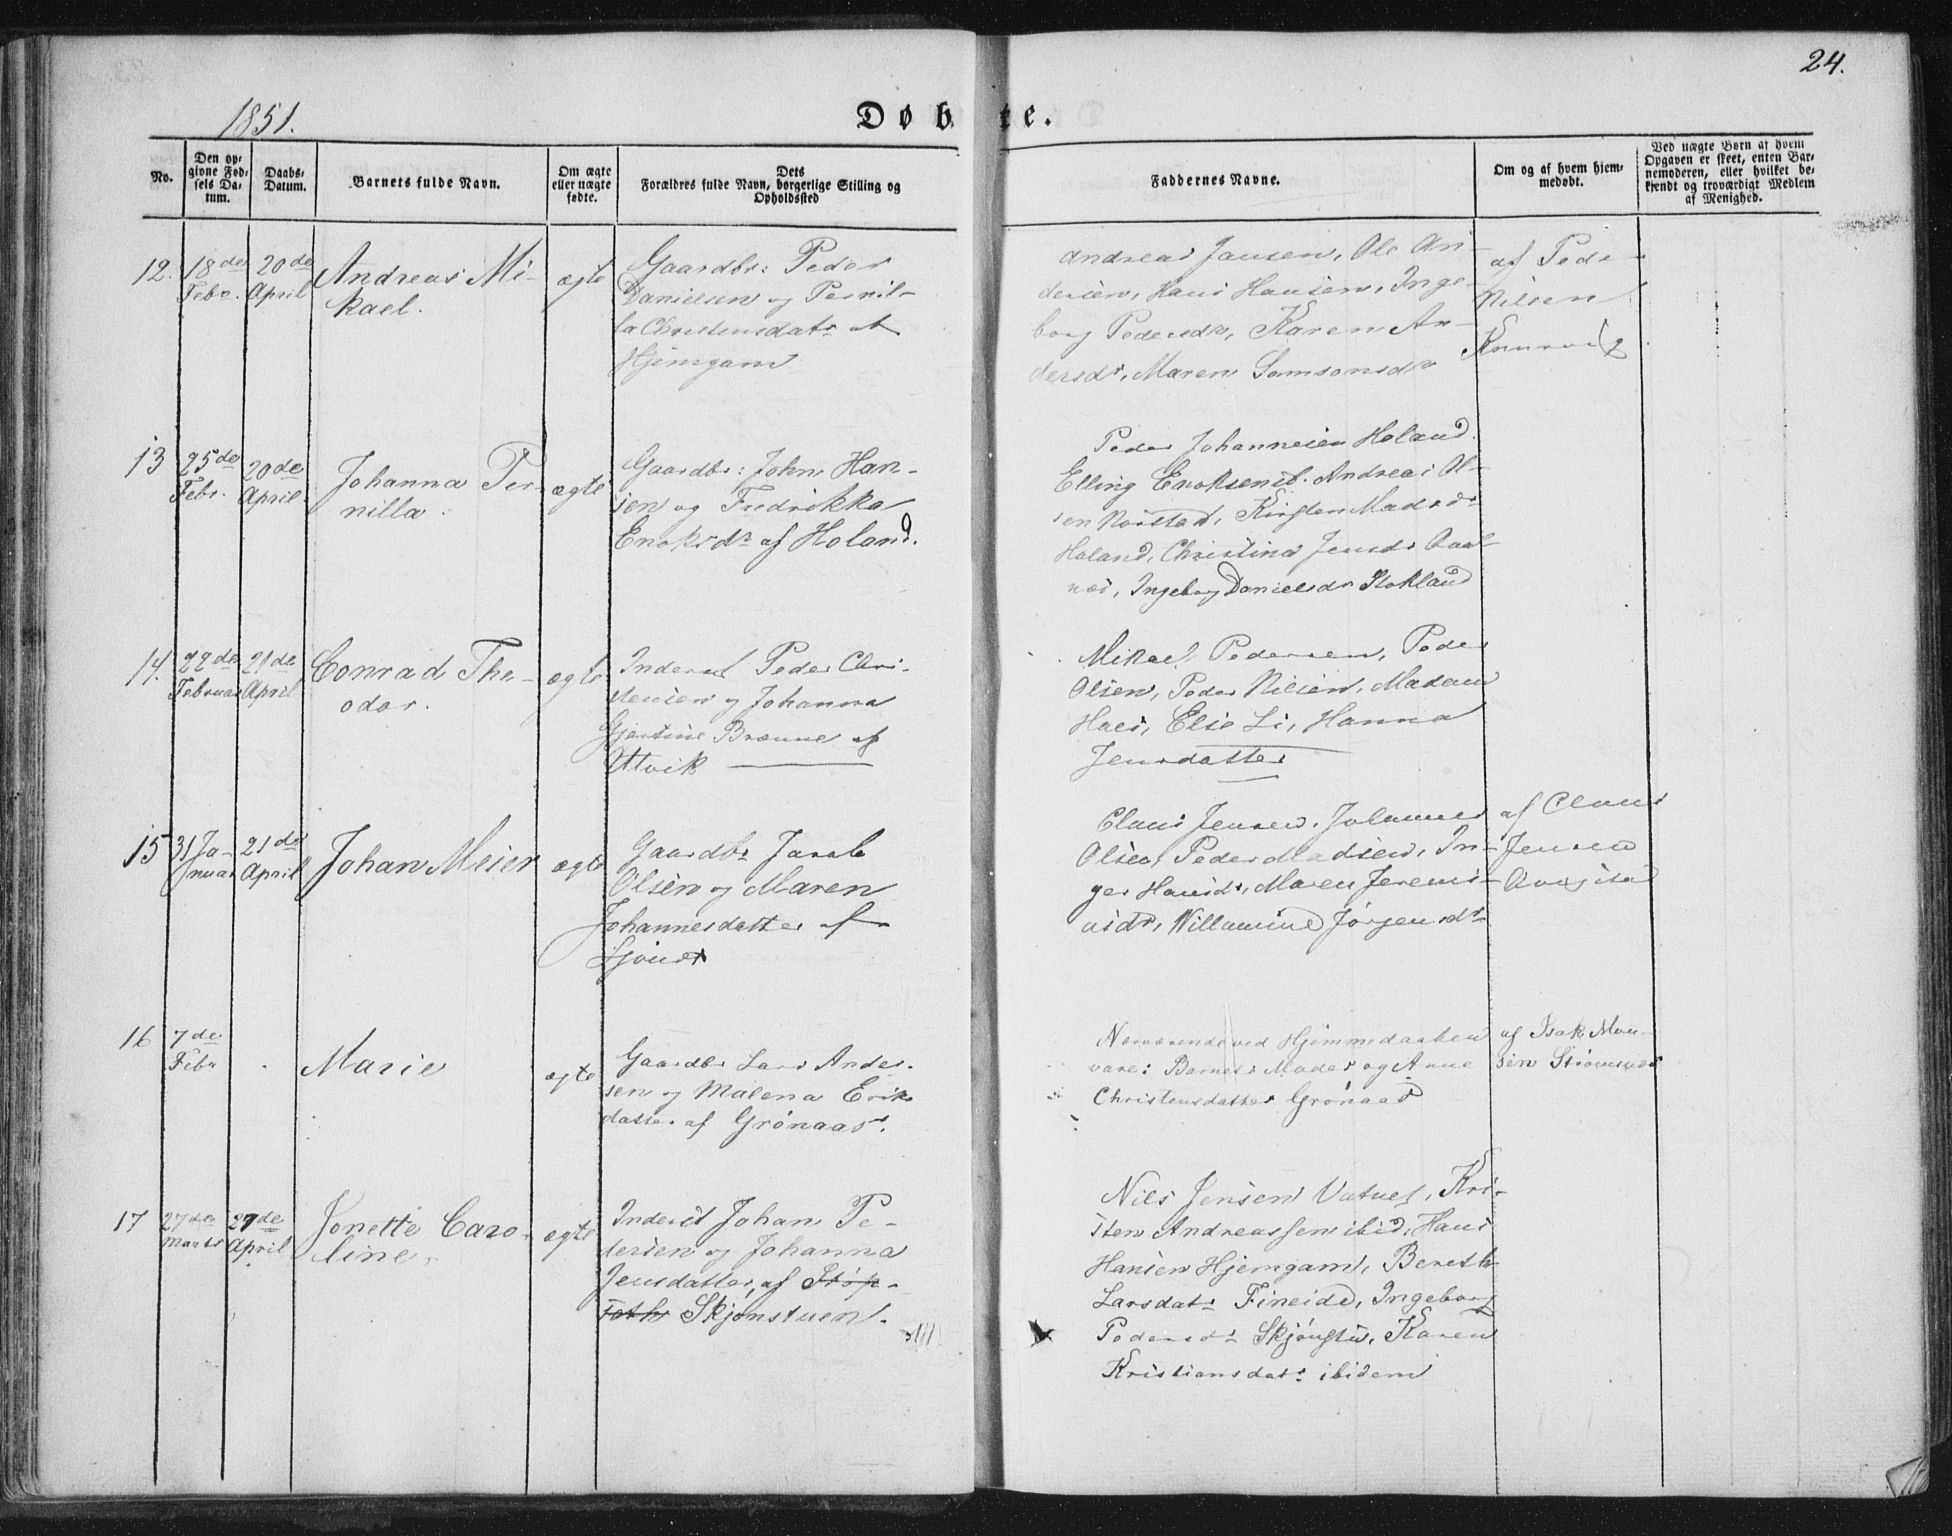 24.
1851.
Døbte.
No.
Den op-
givne Fød-
sels Da-
tum.
Daabs-
Datum.
Barnets fulde Navn.
Om ægte
eller uægte
fødte.
Dets
Forældres fulde Navn, borgerlige Stilling og
Opholdssted
Faddernes Navne.
Om og af hvem hjem-
medøbt.
Ved uægte Børn af hvem
Opgaven er skeet, enten Bar-
nemoderen, eller hvilket be-
kjendt og troværdigt Medlem
af Menighed.
12.
18de
Febr.
20de
April
Andreas Mi-
kael.
ægte
Gaardbr: Peder
Danielsen og Pernil-
la Christensdatr af
Hjemgam
Andreas Jansen, Ole An-
dersen, Hans Hansen, Inge-
borg Pedersdr, Karen An-
dersdr, Maren Samsonsdr
af Peder
Nilsen
13
25de
Febr.
20de
April
Johanna Per-
nilla.
ægte
Gaardbr: John Han-
sen og Fredrikka
Enoksdr af Holand.
Peder Johannesen Holand
Elling Enoksen ib. Andreas Ol-
sen Norstad, Kirsten Madsdr
Holand, Christina Jensdr Aaal-
næs, Ingeborg Danielsdr Stokland
14.
22de
Februar
21de
April
Conrad The-
odor.
ægte
Inderst Peder Chri-
stensen og Johanna
Gjertine Brønne af
Utvik
Mikael Pedersen, Peder
Olsen, Peder Nilsen, Madam
Haes, Else Li, Hanna
Jensdatter
15
31 Ja-
nuar
21de
April
Johan Meier
ægte
Gaardbr Jacob
Olsen og Maren
Johannesdatter af
Claus Jensen, Johannes
Olsen, Peder Madsen, In-
ger Hansdr, Maren Jeremi-
asdr, Willumine Jørgensdr
af Claus
Jensen
16
7de
Febr
Marie
ægte
Gaardbr Lars Ander-
sen og Malena Erik
datter af Grønaas.
Nærværende ved Hjemmedaaben
vare: Barnets Moder og Anne
Christensdatter Grønaas
af Isak Mon-
sen Strømsnes
17
27de
Marts
27de
April
Jonette Caro-
line.
ægte
Inderst Johan Pe-
dersen og Johanna
Jensdatter, af Støp-
Skjønstuen.
Nils Jensen Vatnet, Kri-
sten Andreassen ibid, Hans
Hansen Hjemgam, Bereth
Larsdatr Fineide, Ingeborg
Pedersdr Skjønstu, Karen
Kristiansdatr ibidem